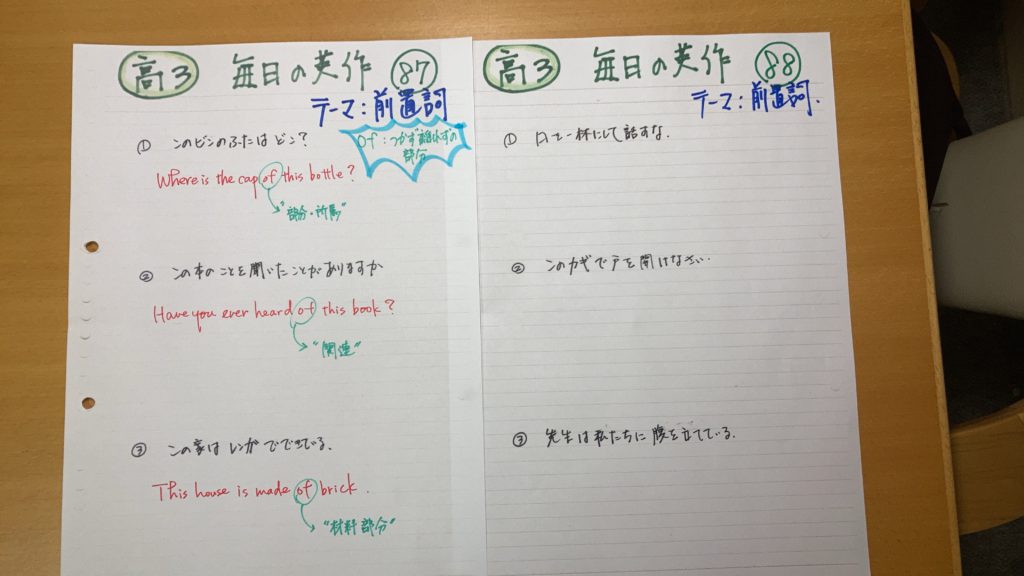 高3 毎日の英作 87
テーマ:前置詞
of:つかず離れずの
部分
① このビンのふたはどこ?
Where is the cap of this bottle?
"部分・所属"
② この本のことを聞いたことがありますか
Have you ever heard of this book?
"関連"
③ この家はレンガでできている.
This house is made of brick.
"材料部分"
高3 毎日の英作 88
テーマ:前置詞.
① 口を一杯にして話すな.
② このカギで戸を開けなさい.
③ 先生は私たちに腹を立てている.